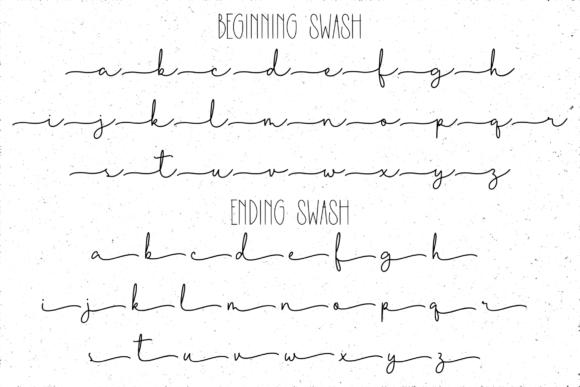 BEGINNING SWASH
a b c d e f g h
i j k l m n o p q r
s t u v w x y z
ENDING SWASH
a b c d e f g h
i j k l m n o p q r
s t u v w x y z